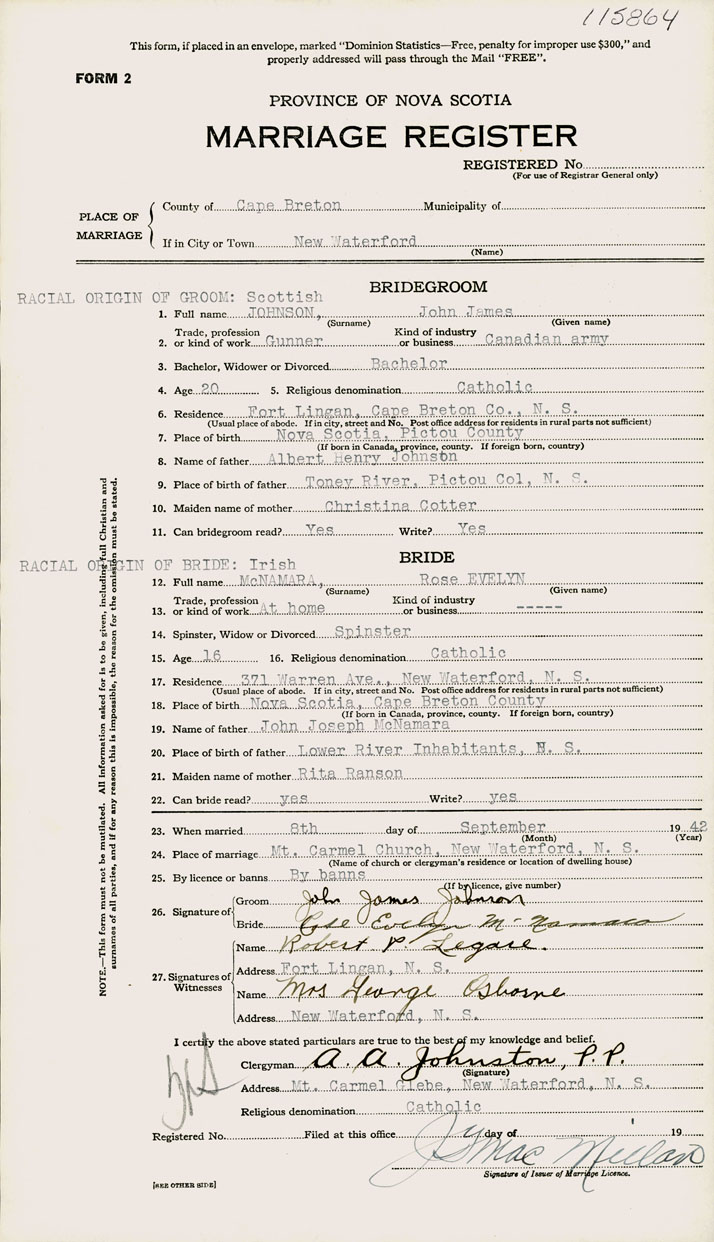 115864
This form, if placed in an envelope, marked "Dominion Statistics—Free, penalty for improper use $300," and
properly addressed will pass through the Mail "FREE".
FORM 2
PROVINCE OF NOVA SCOTIA
MARRIAGE REGISTER
REGISTERED No.
(For use of Registrar General only)
PLACE OF MARRIAGE
County of Cape Breton Municipality of
If in City or Town New Waterford
(Name)
BRIDEGROOM
RACIAL ORIGIN OF GROOM: Scottish
1. Full name JOHNSON, John James
(Surname) (Given name)
2. Trade, profession or kind of work Gunner Kind of industry or business Canadian army
3. Bachelor, Widower or Divorced Bachelor
4. Age 20 5. Religious denomination Catholic
6. Residence Fort Lingan, Cape Breton Co., N. S.
(Usual place of abode. If in city, street and No. Post office address for residents in rural parts not sufficient)
7. Place of birth Nova Scotia, Pictou County
(If born in Canada, province, county. If foreign born, country)
8. Name of father Albert Henry Johnson
9. Place of birth of father Toney River, Pictou Col, N. S.
10. Maiden name of mother Christina Cotter
11. Can bridegroom read? Yes Write? Yes
RACIAL ORIGIN OF BRIDE: Irish
BRIDE
12. Full name McNAMARA, Rose EVELYN
(Surname) (Given name)
13. Trade, profession or kind of work At home Kind of industry or business -----
14. Spinster, Widow or Divorced Spinster
15. Age 16 16. Religious denomination Catholic
17. Residence 371 Warren Ave., New Waterford, N. S.
(Usual place of abode. If in city, street and No. Post office address for residents in rural parts not sufficient)
18. Place of birth Nova Scotia, Cape Breton County
(If born in Canada, province, county. If foreign born, country)
19. Name of father John Joseph McNamara
20. Place of birth of father Lower River Inhabitants, N. S.
21. Maiden name of mother Rita Ranson
22. Can bride read? yes Write? yes
23. When married 8th day of September 1942
(Month) (Year)
24. Place of marriage Mt. Carmel Church, New Waterford, N. S.
(Name of church or clergyman's residence or location of dwelling house)
25. By licence or banns By banns
(If by licence, give number)
26. Signature of
Groom John James Johnson
Bride Rose Evelyn McNamara
27. Signatures of Witnesses
Name Robert P. Legare.
Address Fort Lingan, N. S.
Name Mrs George Osborne
Address New Waterford, N. S.
I certify the above stated particulars are true to the best of my knowledge and belief.
Clergyman A. A. Johnston, P.P.
(Signature)
Address Mt. Carmel Glebe, New Waterford, N. S.
Religious denomination Catholic
Registered No. Filed at this office day of 19
Signature of Issuer of Marriage Licence.
[SEE OTHER SIDE]
NOTE.—This form must not be mutilated. All information asked for is to be given, including full Christian and
surnames of all parties, and if for any reason this is impossible, the reason for the omission must be stated.